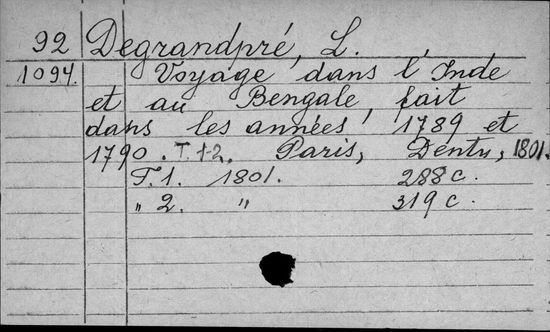 92 Degrandpré, L.
1094. Voyage dans l'Inde
et au Bengale, fait
dans les années 1789 et
1790. T. 1-2. Paris, Dentu, 1801.
T. 1. 1801. 288 c.
„ 2. „ 319 c.